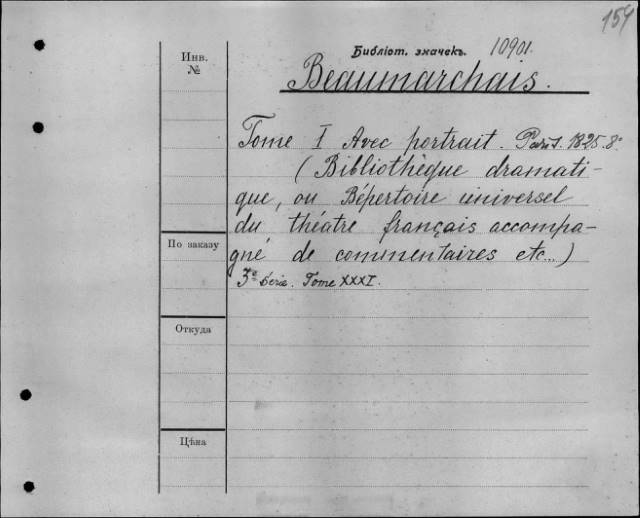 154
Библіот. значекъ. 10901.
Инв.
№
Beaumarchais.
Tome I Avec portrait. Paris. 1825. 8°
(Bibliothèque dramati-
que, ou Bépertoire universel
du théatre français accompa-
По заказу
gné de commentaires etc...)
3e Serie. Tome XXXI.
Откуда
Цѣна